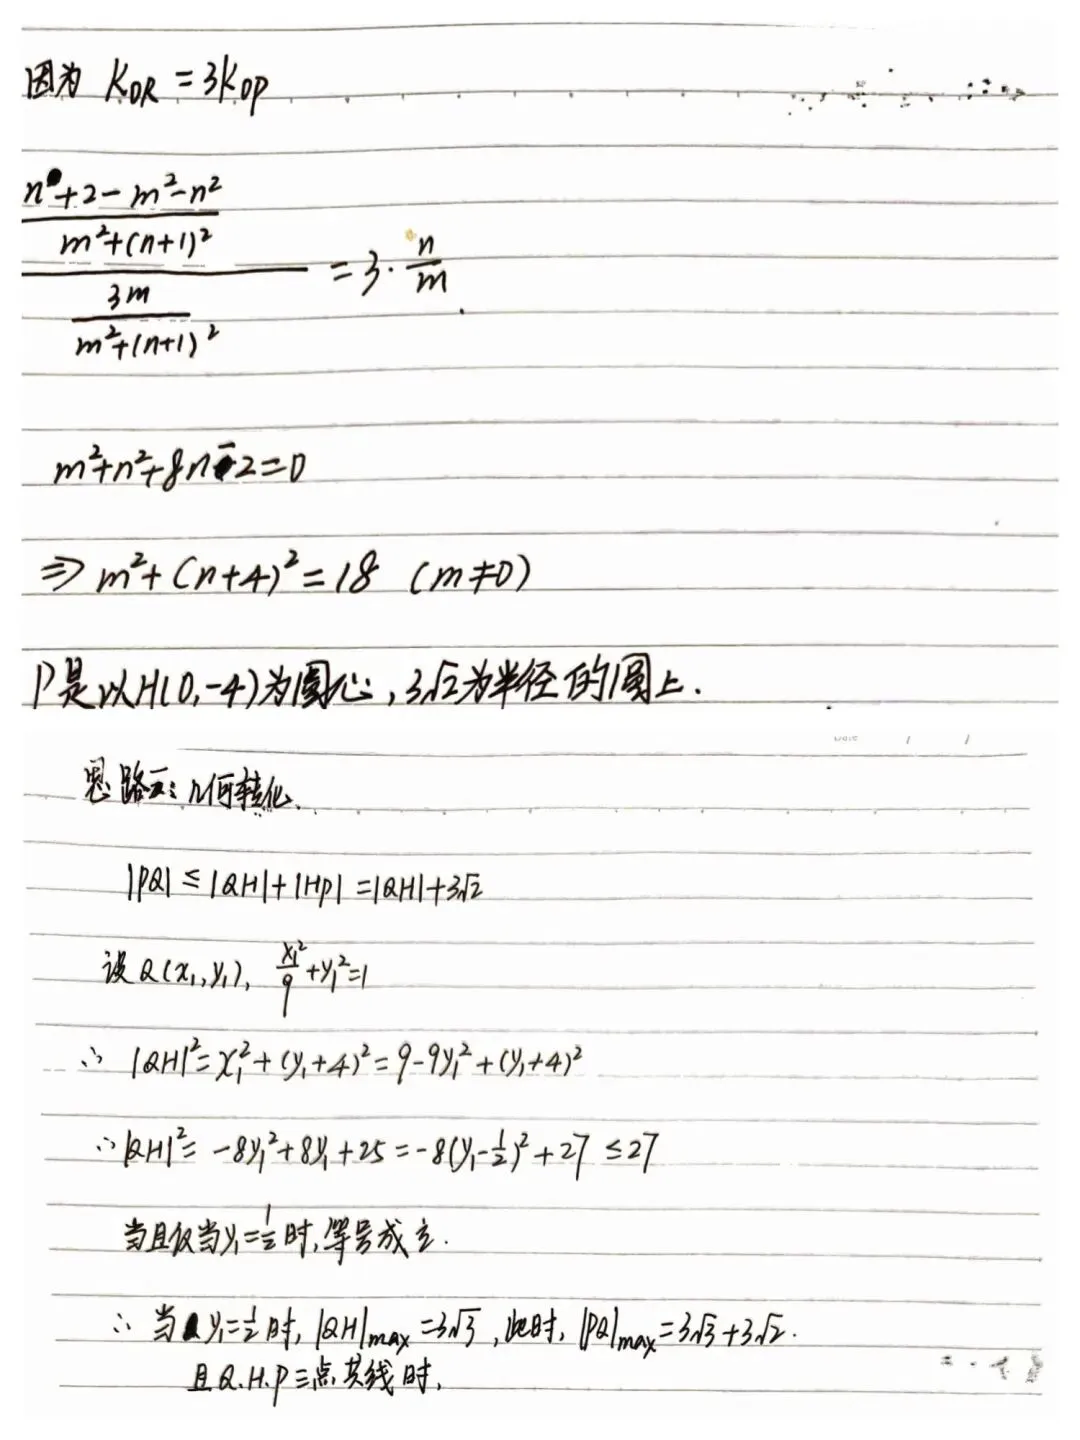 因为 K_OR = 3K_OP
\frac{\frac{n+2-m²-n²}{m²+(n+1)²}}{\frac{3m}{m²+(n+1)²}} = 3·\frac{n}{m}.
m²+n²+8n-2=0
⇒ m²+(n+4)²=18 (m≠0)
P是以H(0,-4)为圆心,3√2为半径的圆上.
思路二:几何转化.
|PQ| ≤ |QH|+|HP| =|QH|+3√2
设Q(x₁,y₁), \frac{x₁²}{9}+y₁²=1
∴ |QH|²=x₁²+(y₁+4)²=9-9y₁²+(y₁+4)²
∴|QH|²= -8y₁²+8y₁+25=-8(y₁-\frac{1}{2})²+27 ≤27
当且仅当y₁=\frac{1}{2}时,等号成立.
∴ 当y₁=\frac{1}{2}时, |QH|max=3√3,此时, |PQ|max=3√3+3√2.
且Q.H.P三点共线时,